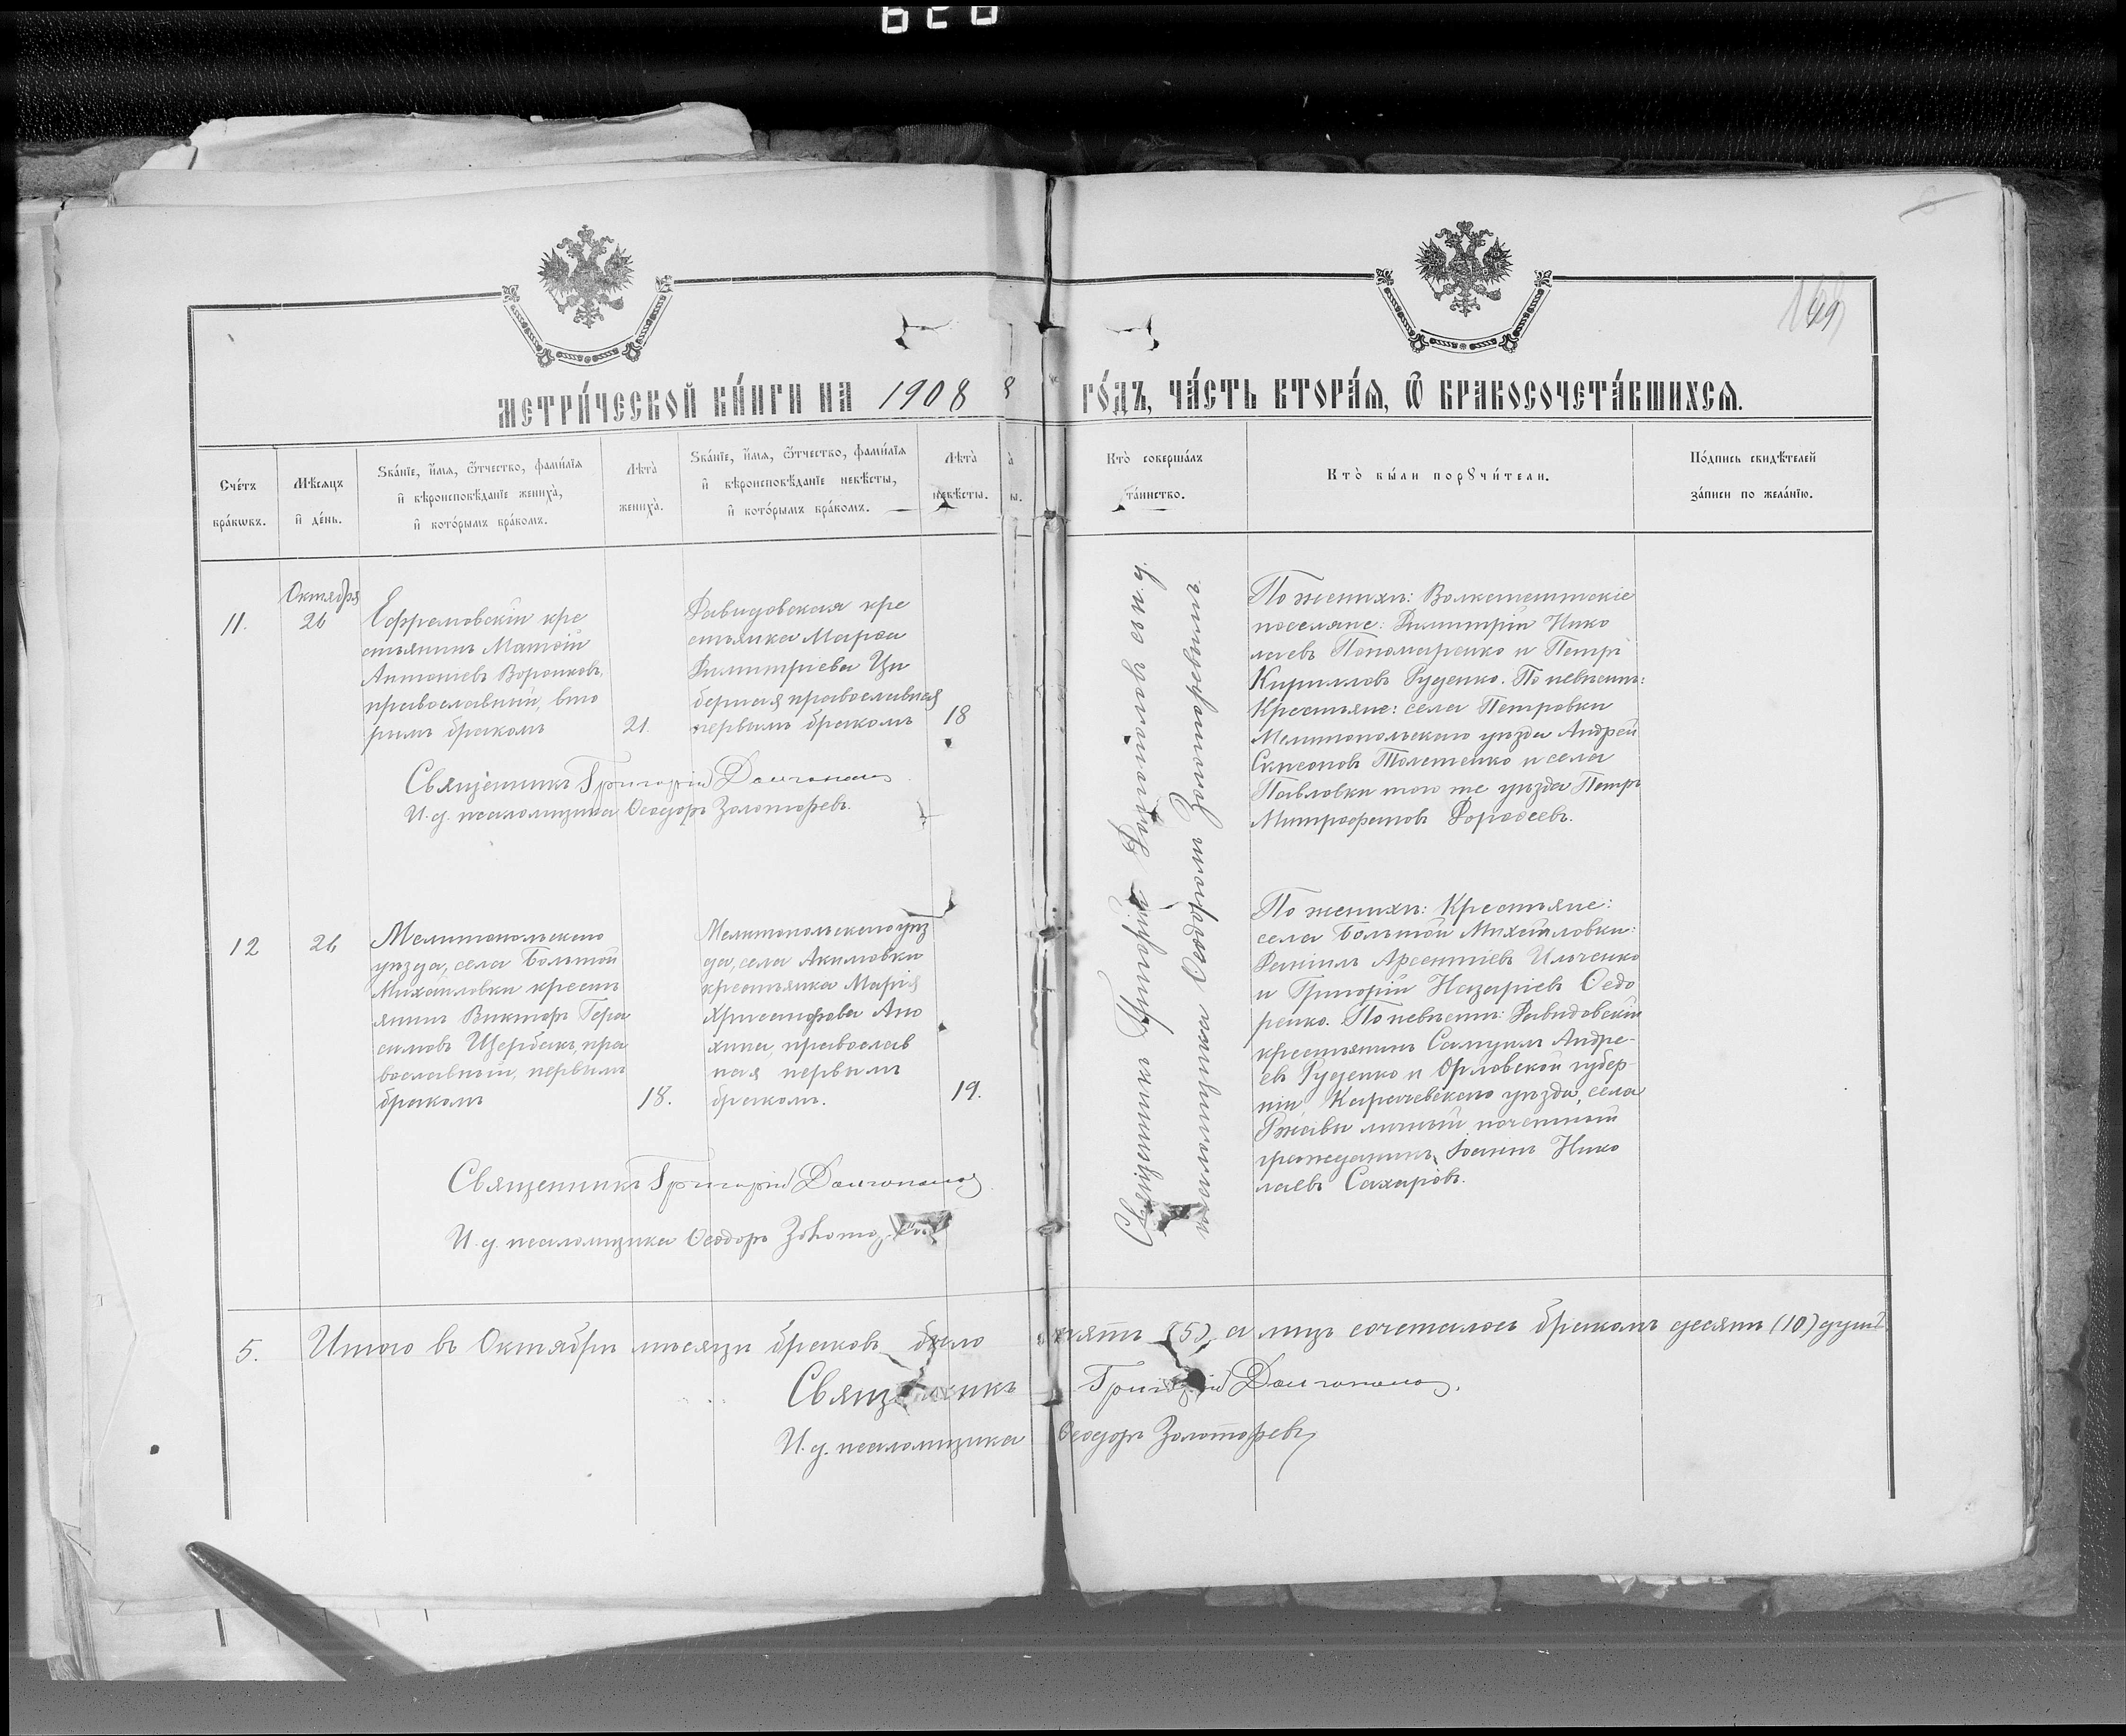 029
149
МЕТРИ́ЧЕСКОЙ КНИ́ГИ НА 1908
8
ГО́ДЪ, ЧА́СТЬ ВТОРА́Я, Ѽ БРАКОСОЧЕТА́ВШИХСЯ.
Сче́тъ
бра́кѡвъ.
Мѣ́сяцъ
и҆ де́нь.
Ѕва́нїе, и҆́мѧ, ѻ҆́тчество, фами́лїѧ
и҆ вѣроисповѣ́данїе жениха̀,
и҆ кото́рымъ бра́комъ.
Лѣта̀
жениха̀.
Ѕва́нїе, и҆́мѧ, ѻ҆́тчество, фами́лїѧ
и҆ вѣроисповѣ́данїе невѣ́сты,
и҆ кото́рымъ бра́комъ.
Лѣта̀
невѣ́сты.
а̀
ы.
Кто̀ соверша́лъ
та́инство.
Кто̀ бы́ли порꙋчи́тели.
По́дпись свидѣ́телей
за́писи по жела́нїю.
11.
Октября
26
Ефремовскій кре
стьянинъ Матѳій
Антоніевъ Воронковъ,
православный, вто
рымъ бракомъ
21.
Давидовская кре
стьянка Марѳа
Димитріева Ци
берная православная
первымъ бракомъ
18
Священникъ Григорій Долгополовъ
И. д. псаломщика Ѳеодоръ Золоторевъ.
Священникъ Григорій Долгополовъ съ и. д.
псаломщика Ѳеодоромъ Золоторевымъ
По женихѣ: Волкенештскіе
поселяне: Димитрій Нико
лаевъ Пономаренко и Петръ
Кирилловъ Руденко. По невѣстѣ:
Крестьяне: села Петровки
Мелитопольскаго уѣзда Андрей
Толстенко и села
Павловки того же уѣзда Петръ
Митрофановъ Дороѳеевъ.
12
26
Мелитопольскаго
уѣзда, села Большой
Михайловки кресть
янинъ Викторъ Гера
симовъ Щербакъ, пра
вославный, первымъ
бракомъ
18.
Мелитопольскаго уѣз
да, села Акимовки
крестьянка Марія
Христофорова Ано
хина, православ
ная первымъ
бракомъ.
19.
По женихѣ: Крестьяне:
села Большой Михайловки:
Даніилъ Арсентіевъ Ильченко
и Григорій Назаріевъ Ѳедо
ренко. По невѣстѣ: Давидовскій
крестьянинъ Самуилъ Андре-
евъ Руденко и Орловской губер-
ніи, Карачевскаго уѣзда, села
Ржавы личный почетный
гражданинъ Іоаннъ Нико
лаевъ Сахаровъ.
Священникъ Григорій Долгополовъ
И. д. псаломщика Ѳеодоръ
5. Итого въ Октябрѣ мѣсяцѣ браковъ было пять (5), а лицъ сочеталось бракомъ десять (10) душъ
Священникъ Григорій Долгополовъ.
И. д. псаломщика Ѳеодоръ Золоторевъ